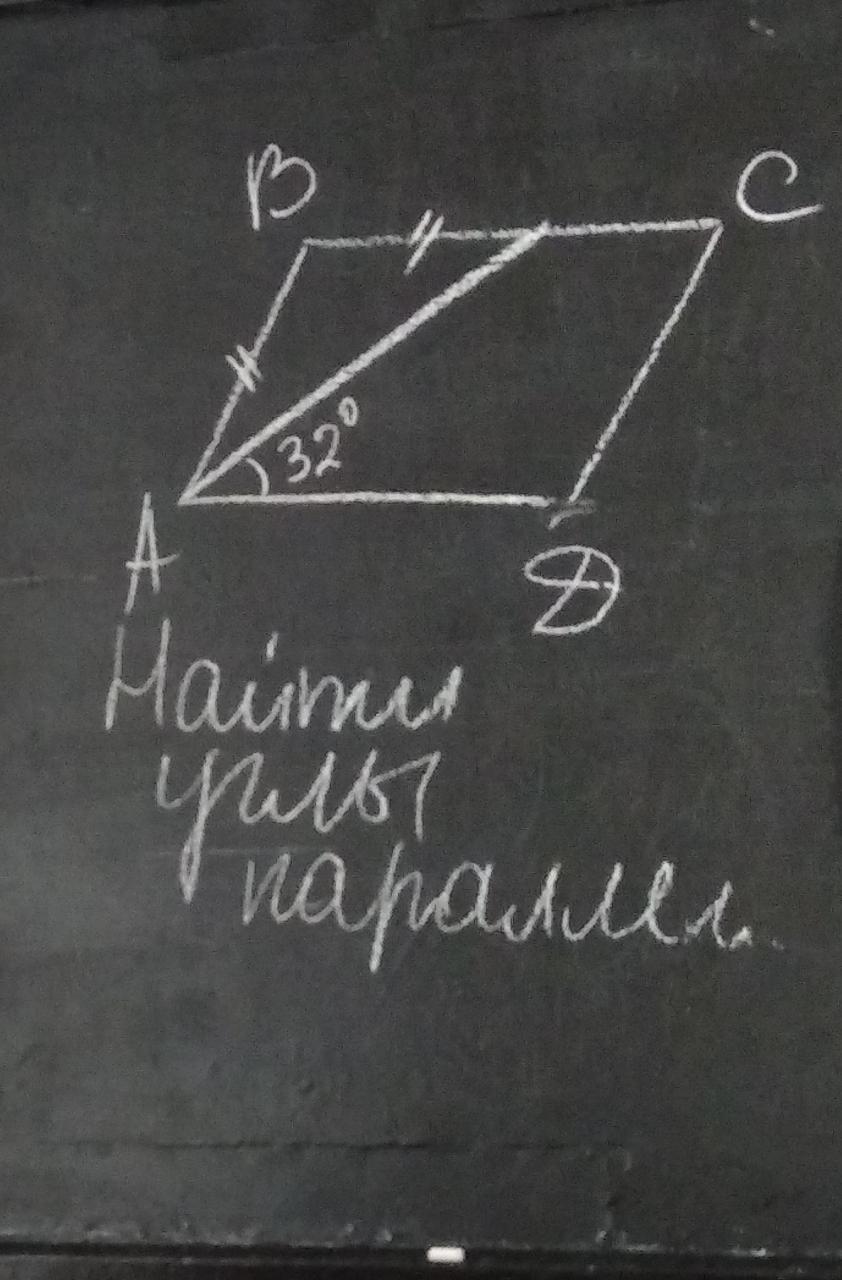 B C
32°
A D
Найти
углы
параллел.